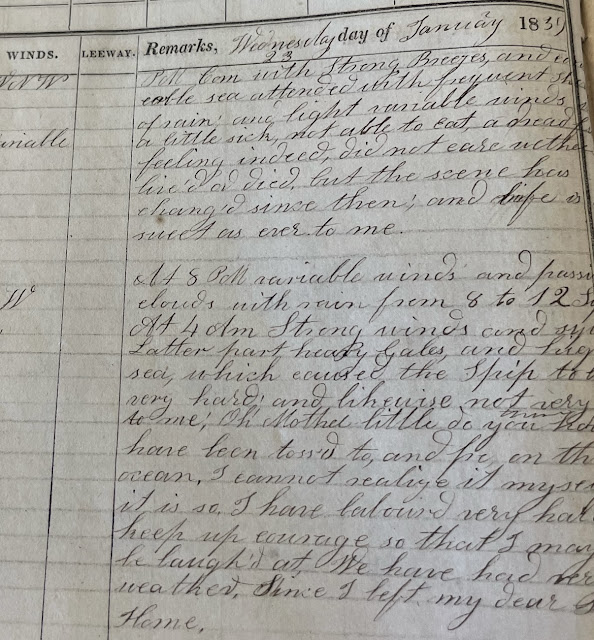 WINDS. LEEWAY. Remarks, Wednesday day of January 1839
23
WNW PM Com with Strong Breezes, and
erable sea attended with frequent
of rain; and light variable winds,
variable a little sick, not able to eat, a
feeling indeed, did not care
live'd or died, but the scene has
chang'd since then; and life is
sweet as ever to me.
At 8 PM variable winds and
W clouds with rain from 8 to 12
At 4 Am Strong winds and
Latter part heavy Gales, and
sea, which caused the Ship to
very hard; and likewise not very
to me; Oh Mother little do you
have been toss'd to, and fro, on the
ocean, I cannot realize it
it is so, I have labour'd very
keep up courage so that I may
be laugh'd at, We have had
weather, Since I left my dear
Home,